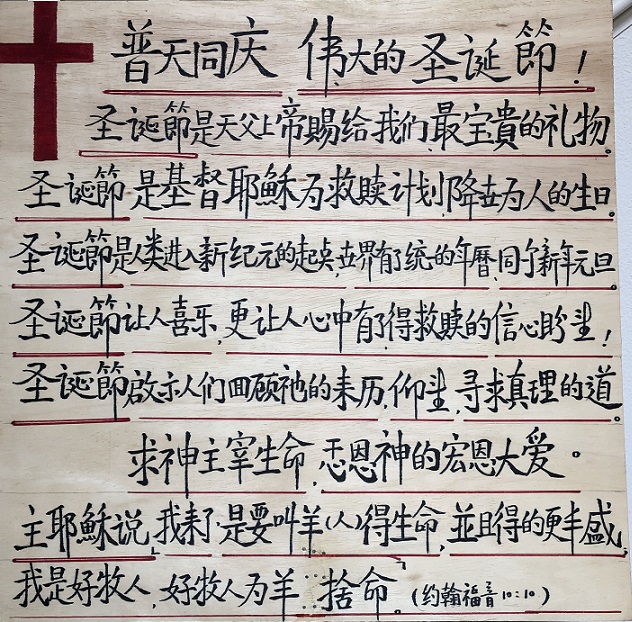 普天同庆 伟大的圣诞節！
圣诞節是天父上帝賜给我们,最宝貴的礼物。
圣诞節是基督耶穌为救赎计划,降世为人的生日。
圣诞節是人类进入新纪元的起点,世界有了统一的年曆,同一个新年元旦。
圣诞節让人喜乐,更让人心中有了得救赎的信心盼望！
圣诞節啟示人们回顾祂的来历,仰望,寻求真理的道。
求神主宰生命,感恩神的宏恩大爱。
主耶穌说「我来了,是要叫羊(人)得生命,並且得的更丰盛,
我是好牧人,好牧人为羊……捨命。」(约翰福音10:10)